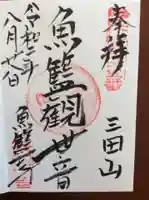 奉拝
三田山
魚籃観世音
魚籃寺
令和二年
八月廿八日